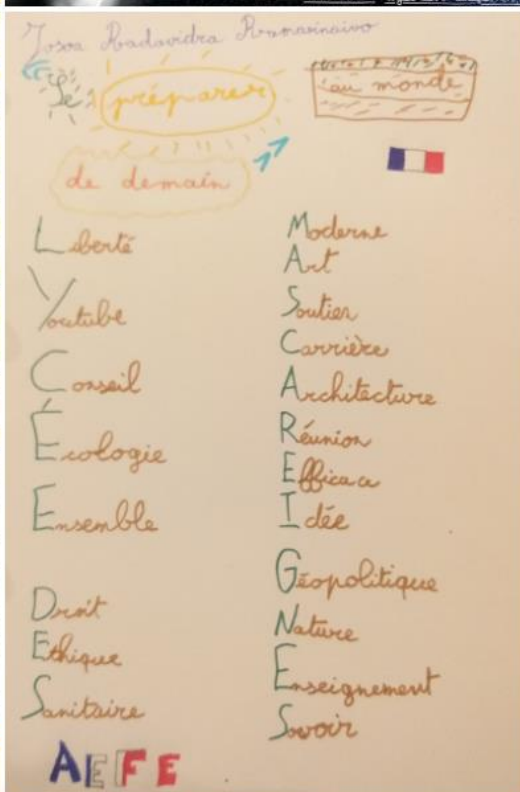 Se préparer au monde
de demain
Liberté
Youtube
Conseil
Écologie
Ensemble
Droit
Ethique
Sanitaire
Moderne
Art
Soutien
Carrière
Architecture
Réunion
Efficace
Idée
Géopolitique
Nature
Enseignement
Savoir
AEFE